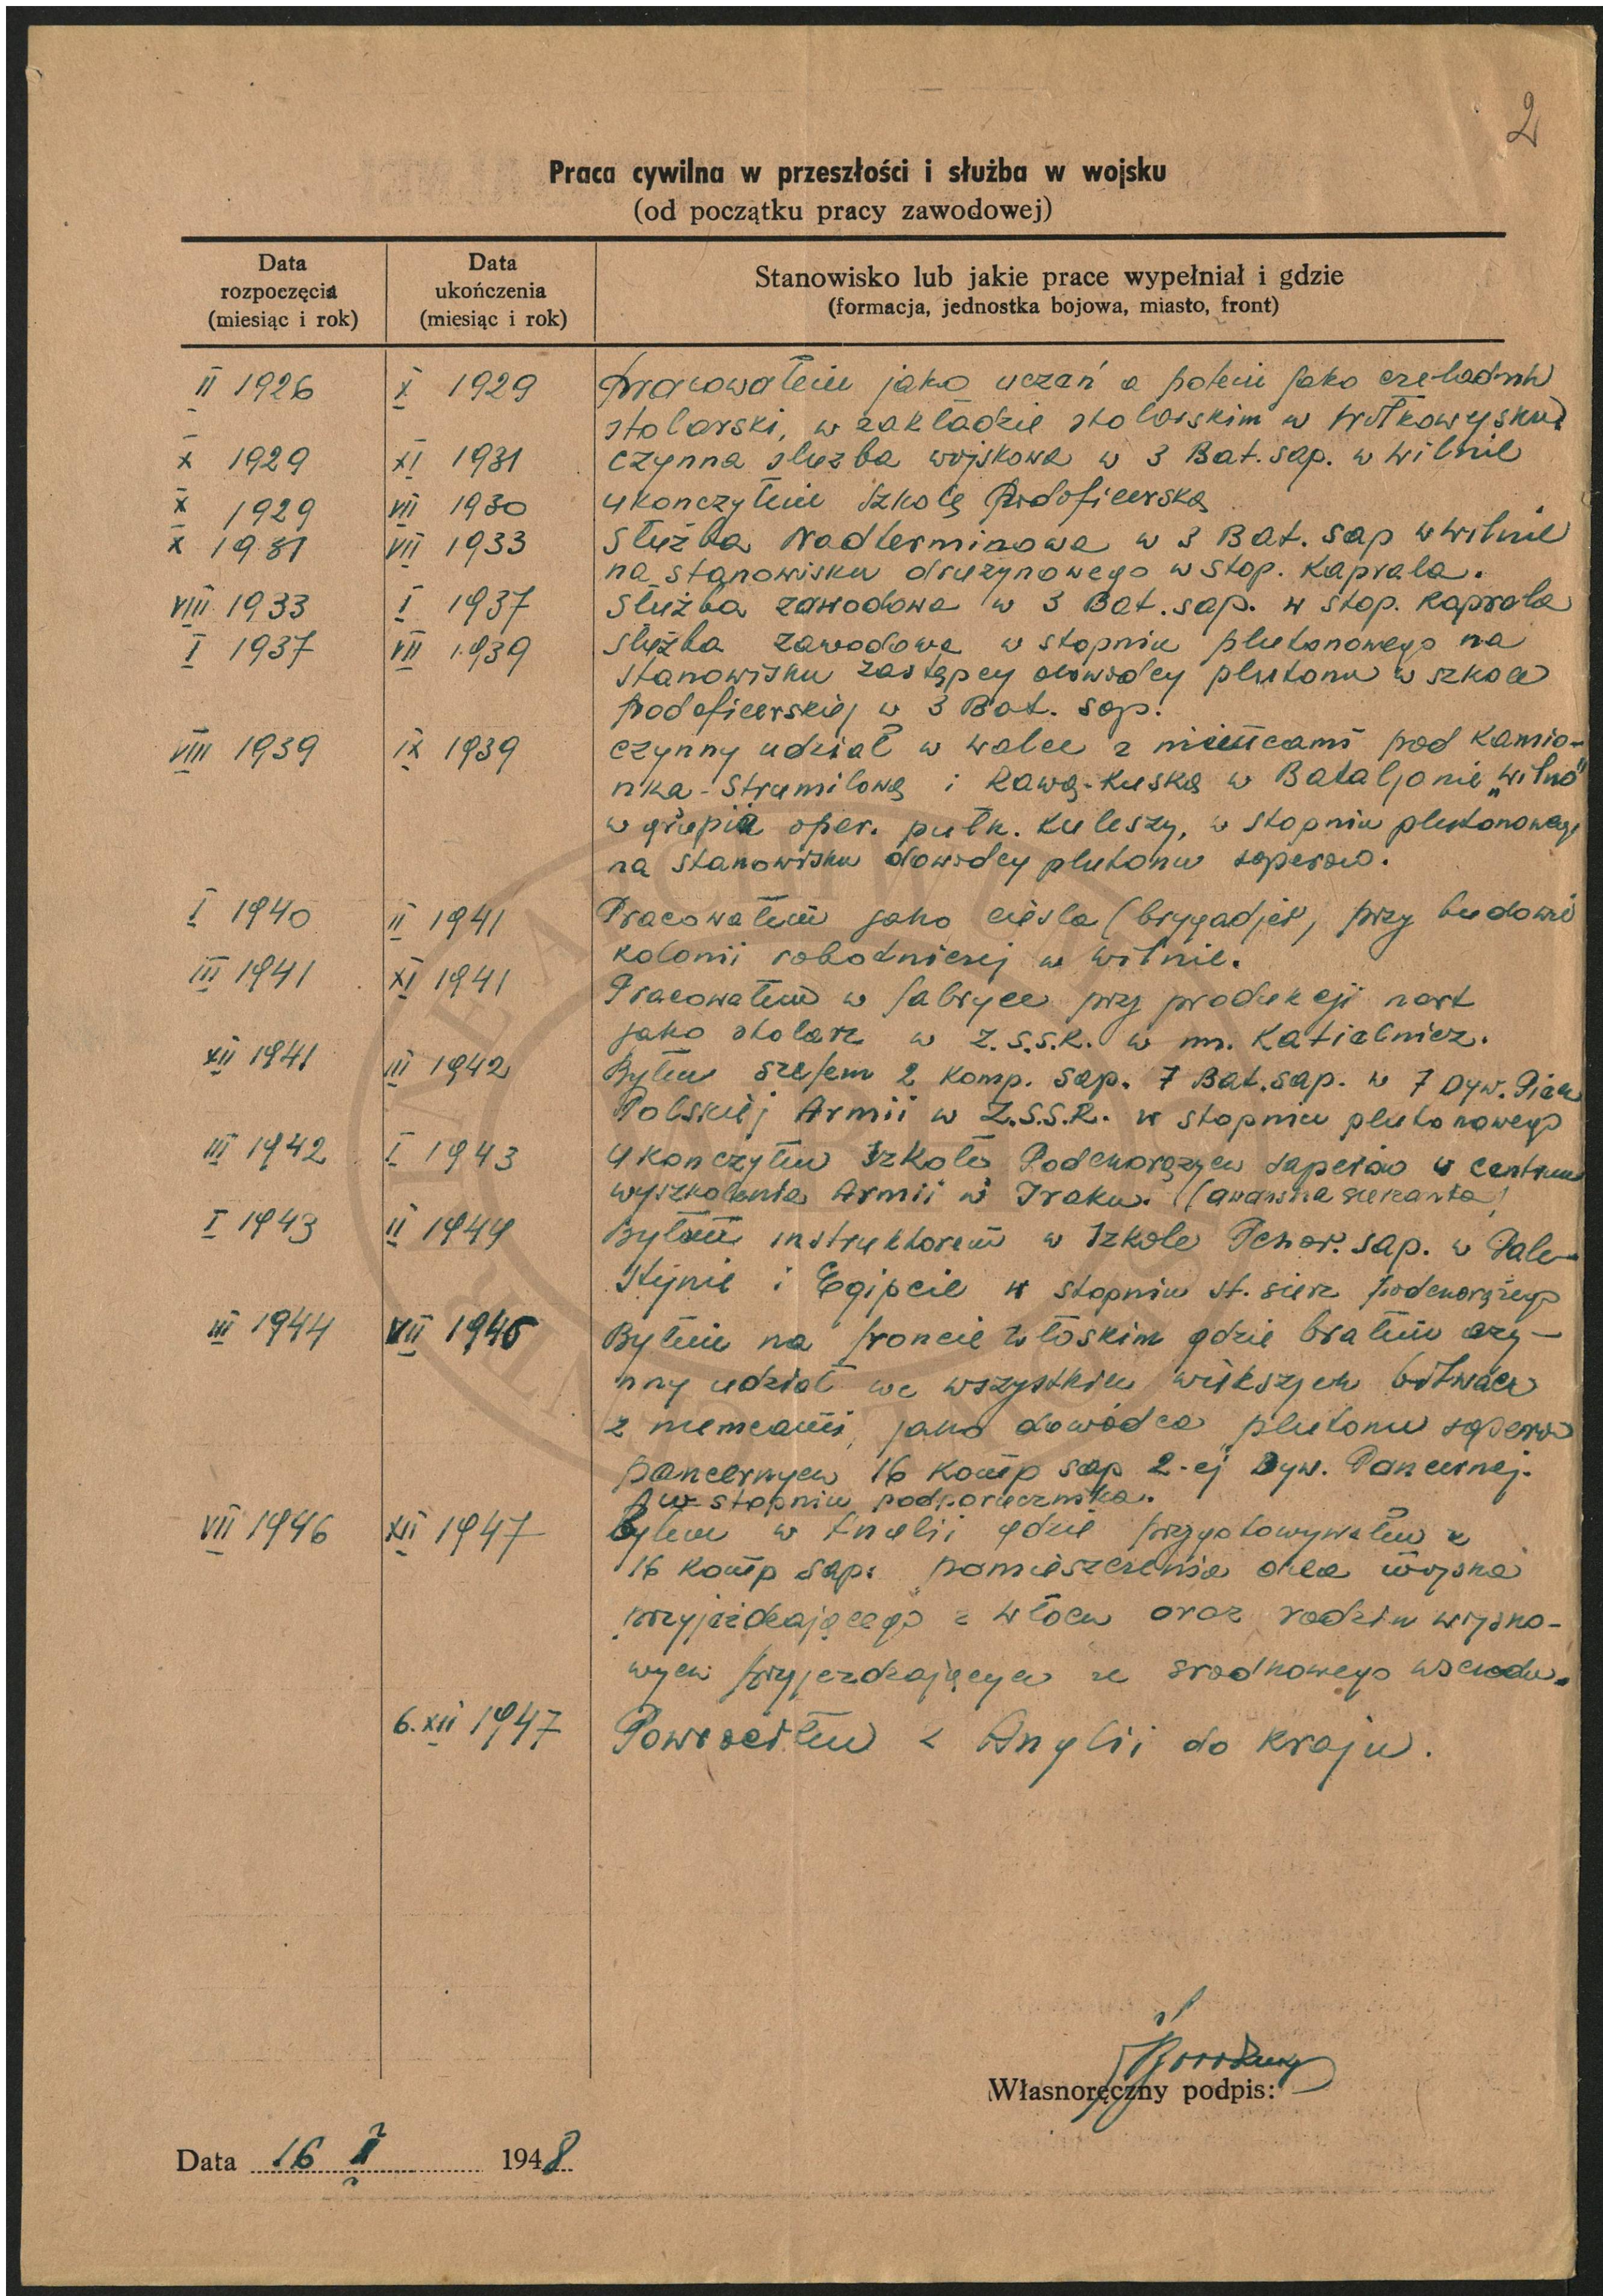 2
Praca cywilna w przeszłości i służba w wojsku
(od początku pracy zawodowej)
Data rozpoczęcia (miesiąc i rok)
Data ukończenia (miesiąc i rok)
Stanowisko lub jakie prace wypełniał i gdzie
(formacja, jednostka bojowa, miasto, front)
II 1926 X 1929 Pracowałem jako uczań a potem jako czeladnik
stolarski, w zakładzie stolarskim w Wołkowysku
X 1929 XI 1931 czynna służba wojskowa w 3 Bat. sap. w Wilnie
X 1929 VII 1930 Ukończyłem Szkołę Podoficerską
X 1931 VII 1933 Służba Nadterminowa w 3 Bat. sap w Wilnie
na stanowisku drużynowego w stop. Kaprala.
VIII 1933 I 1937 Służba zawodowa w 3 Bat. sap. w stop. Kaprala
I 1937 VII 1939 służba zawodowa w stopniu plutonowego na
stanowisku zastępcy dowódcy plutonu w szkole
podoficerskiej w 3 Bat. sap.
VIII 1939 IX 1939 czynny udział w walce z niemcami pod Kamio-
nka-Strumilową i Rawą-Ruską w Bataljonie „Wilno"
w grupie oper. pułk. Kuleszy, w stopniu plutonowego
na stanowisku dowódcy plutonu saperów.
I 1940 II 1941 Pracowałem jako cieśla (brygadjer, przy budowie
kolonii robotniczej w Wilnie.
III 1941 XI 1941 Pracowałem w fabryce przy produkcji nart
jako stolarz w Z.S.S.R. w m. Katielnicz.
XII 1941 III 1942 Byłem szefem 2 Komp. sap. 7 Bat. sap. w 7 Dyw. Piech
Polskiej Armii w Z.S.S.R. w stopniu plutonowego
III 1942 I 1943 Ukończyłem Szkołę Podchorążych saperów w centrum
wyszkolenia Armii w Iraku. (awans na sierżanta)
I 1943 II 1944 Byłem instruktorem w Szkole Pchor. sap. w Pale-
stynie i Egipcie w stopniu st. sierż podchorążego
III 1944 VII 1946 Byłem na froncie Włoskim gdzie brałem czy-
nny udział we wszystkich większych bitwach
z niemcami, jako dowódca plutonu saperów
pancernych 16 Komp sap 2-ej Dyw. Pancernej.
w stopniu podporucznika.
VII 1946 XII 1947 Byłem w Anglii gdzie przygotowywałem z
16 Komp sap. pomieszczenia dla wojska
przyjeżdżającego z Włoch oraz rodzin wojsko-
wych przyjeżdżających ze srodkowego wschodu.
6. XII 1947 Powróciłem z Anglii do kraju.
Własnoręczny podpis:
Data 16 I 1948